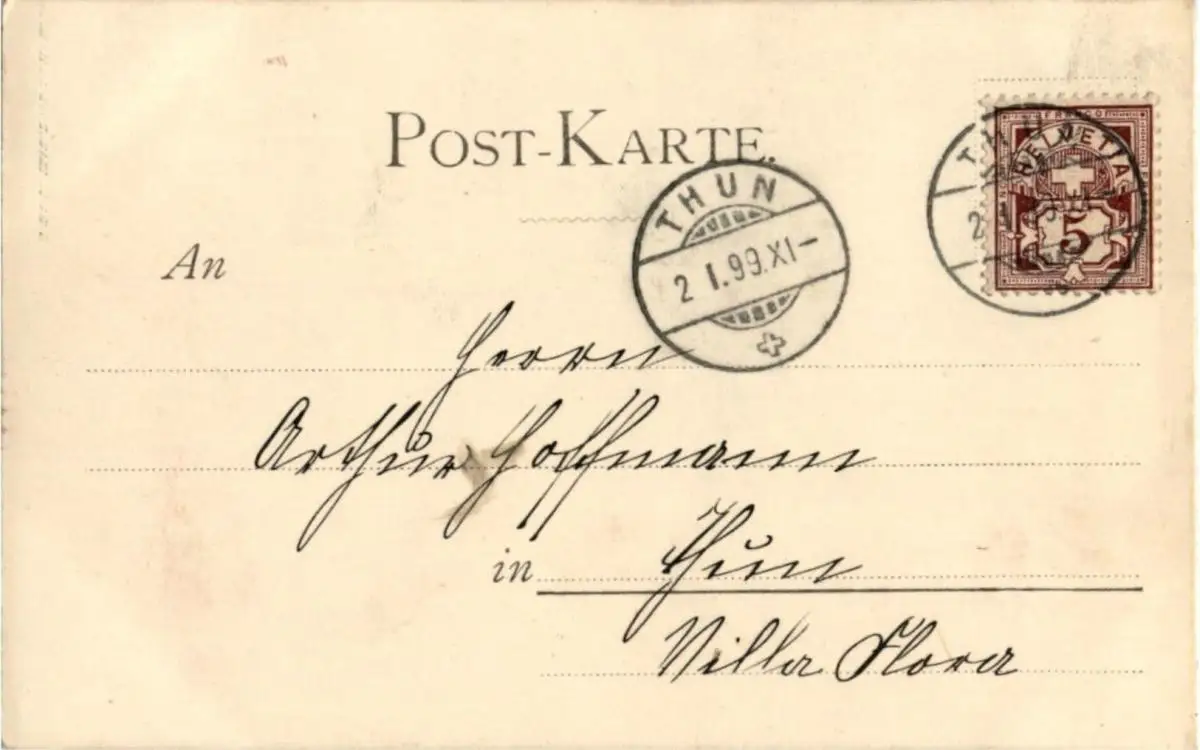 POST-KARTE.
THUN
2 I.99.XI–
THUN
2 I
FRANCO
HELVETIA
5
An
Herrn
Arthur Hoffmann
in Thun
Villa Flora